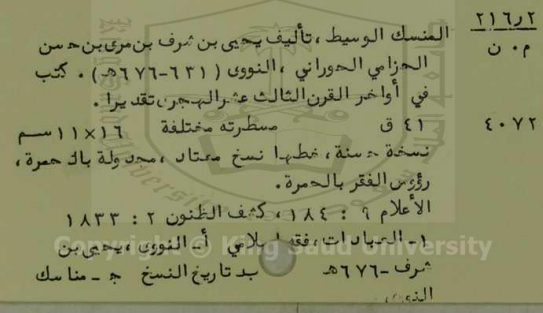 ٢١٦٫٢
م ٠ ن
المنسك الوسيط ، تأليف يحيى بن شرف بن مرى بن حسن
الحزامي الحوراني ، النووى ( ٦٣١-٦٧٦هـ ) ٠ كتب
في أواخر القرن الثالث عشر الهجرى تقديرا ٠
٤١ ق مسطرته مختلفة ١٦×١١سم
٤٠٧٢
نسخة حسنة ، خطها نسخ معتاد ، مجدولة بالحمرة ،
رؤوس الفقر بالحمرة ٠
الأعلام ٩ : ١٨٤ ، كشف الظنون ٢ : ١٨٣٣
١- العبادات ، فقه اسلامي أ- النووى ، يحيى بن
شرف -٦٧٦هـ ب- تاريخ النسخ ج - مناسك
النووى ٠
Copyright © King Saud University